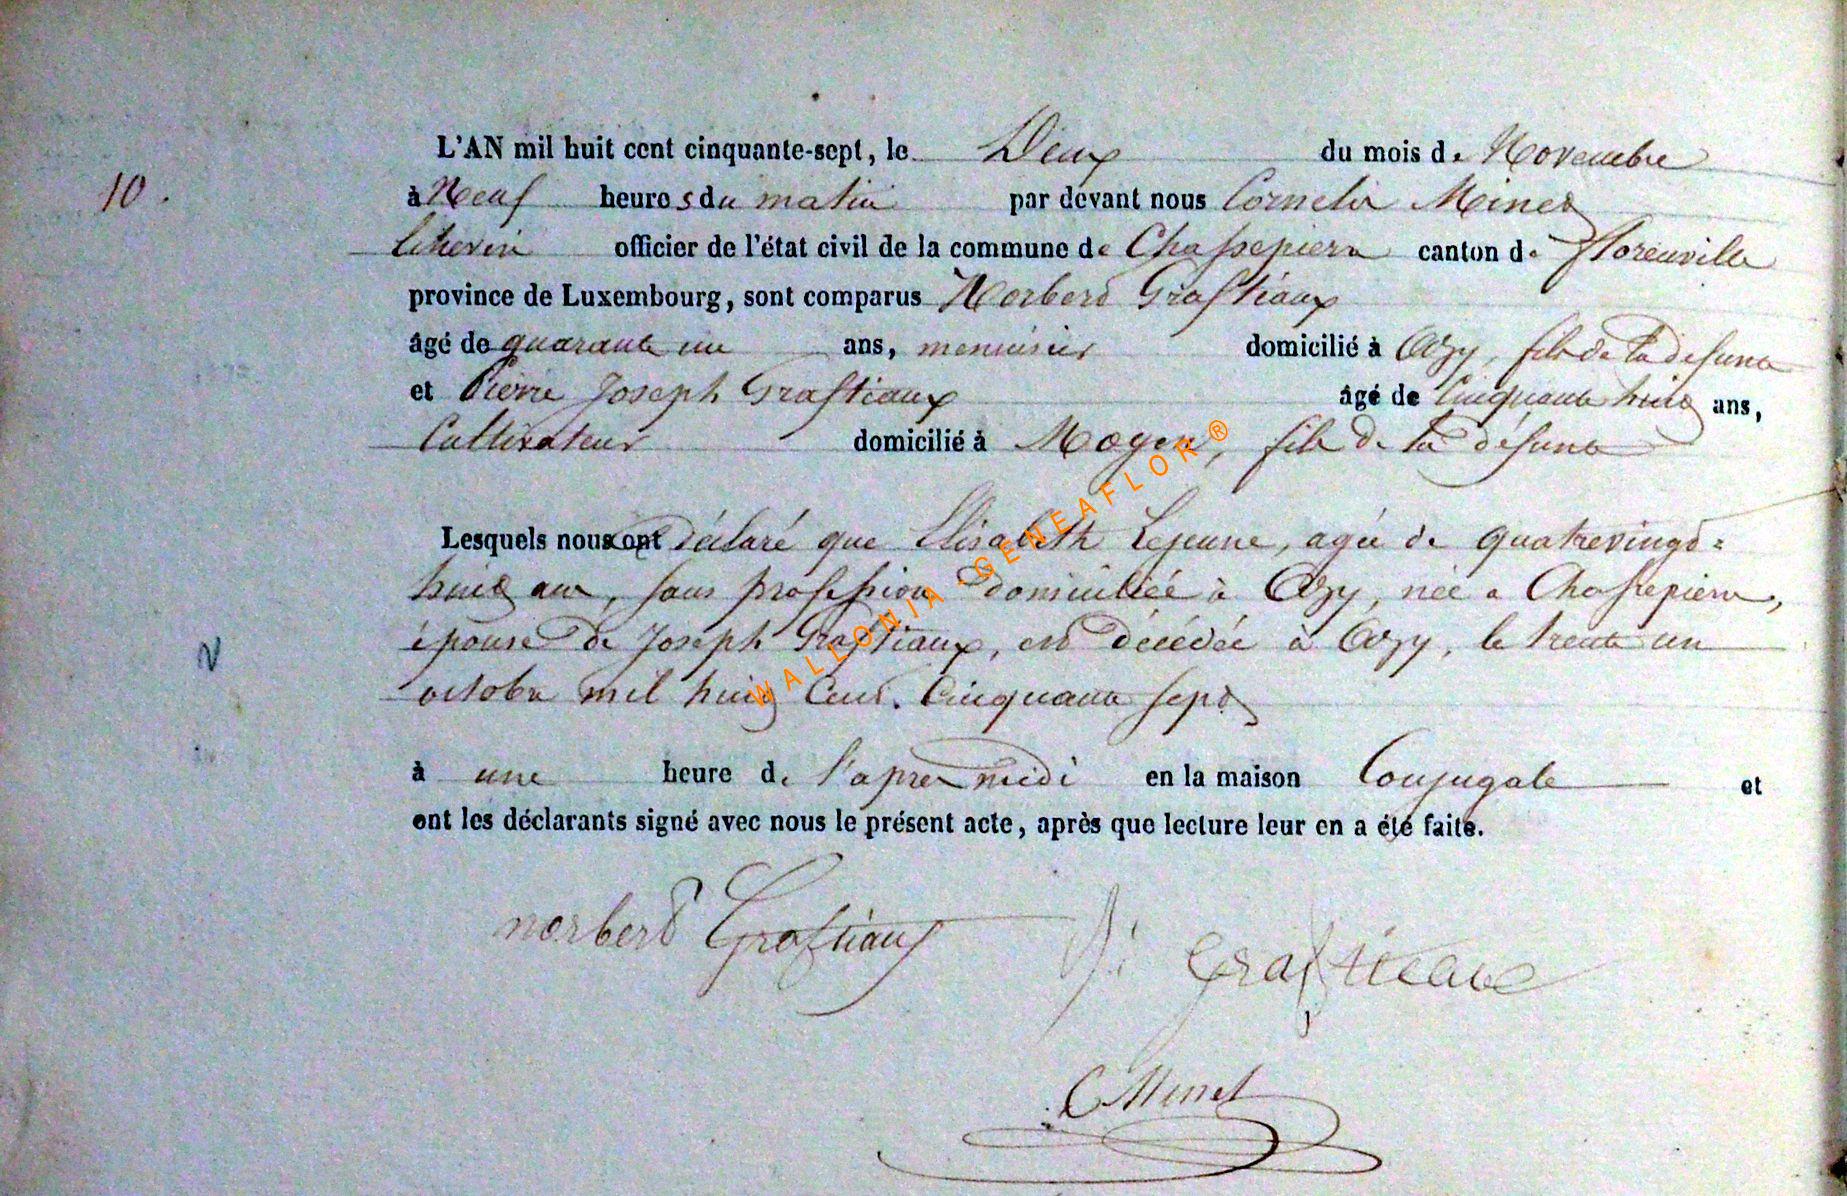 L'AN mil huit cent cinquante-sept, le Deux du mois de Novembre
10. à Neuf heures du matin par devant nous Cornelis Minet
Echevin officier de l'état civil de la commune de Chassepierre canton de florenville
province de Luxembourg, sont comparus Norbert Grastiaux
âgé de quarante un ans, menuisier domicilié à Azy, fils de la defunte
et Pierre Joseph Grastiaux âgé de Cinquante huit ans,
Cultivateur domicilié à Moyen, fils de la défunte
Lesquels nous ont déclaré que Elisabeth Lejeune, agée de quatrevingt=
huit ans, sans profession domiciliée à Azy, née a Chassepierre,
épouse de Joseph Grastiaux, est décédée à Azy, le trente un
octobre mil huit Cent. Cinquante sept
à une heure de l'apres midi en la maison Conjugale et
ont les déclarants signé avec nous le présent acte, après que lecture leur en a été faite.
norbert Grastiaux
Grastieaux
C Minet
WALLONIA - GENEAFLOR ®